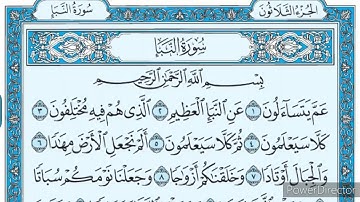 الجزء الثلاثون سورة النبإ
سورة النبإ
بسم الله الرحمن الرحيم
عَمَّ يَتَسَاءَلُونَ ١ عَنِ النَّبَإِ الْعَظِيمِ ٢ الَّذِي هُمْ فِيهِ مُخْتَلِفُونَ ٣
كَلَّا سَيَعْلَمُونَ ٤ ثُمَّ كَلَّا سَيَعْلَمُونَ ٥ أَلَمْ نَجْعَلِ الْأَرْضَ مِهَادًا ٦
وَالْجِبَالَ أَوْتَادًا ٧ وَخَلَقْنَاكُمْ أَزْوَاجًا ٨ وَجَعَلْنَا نَوْمَكُمْ سُبَاتًا
PowerDirector